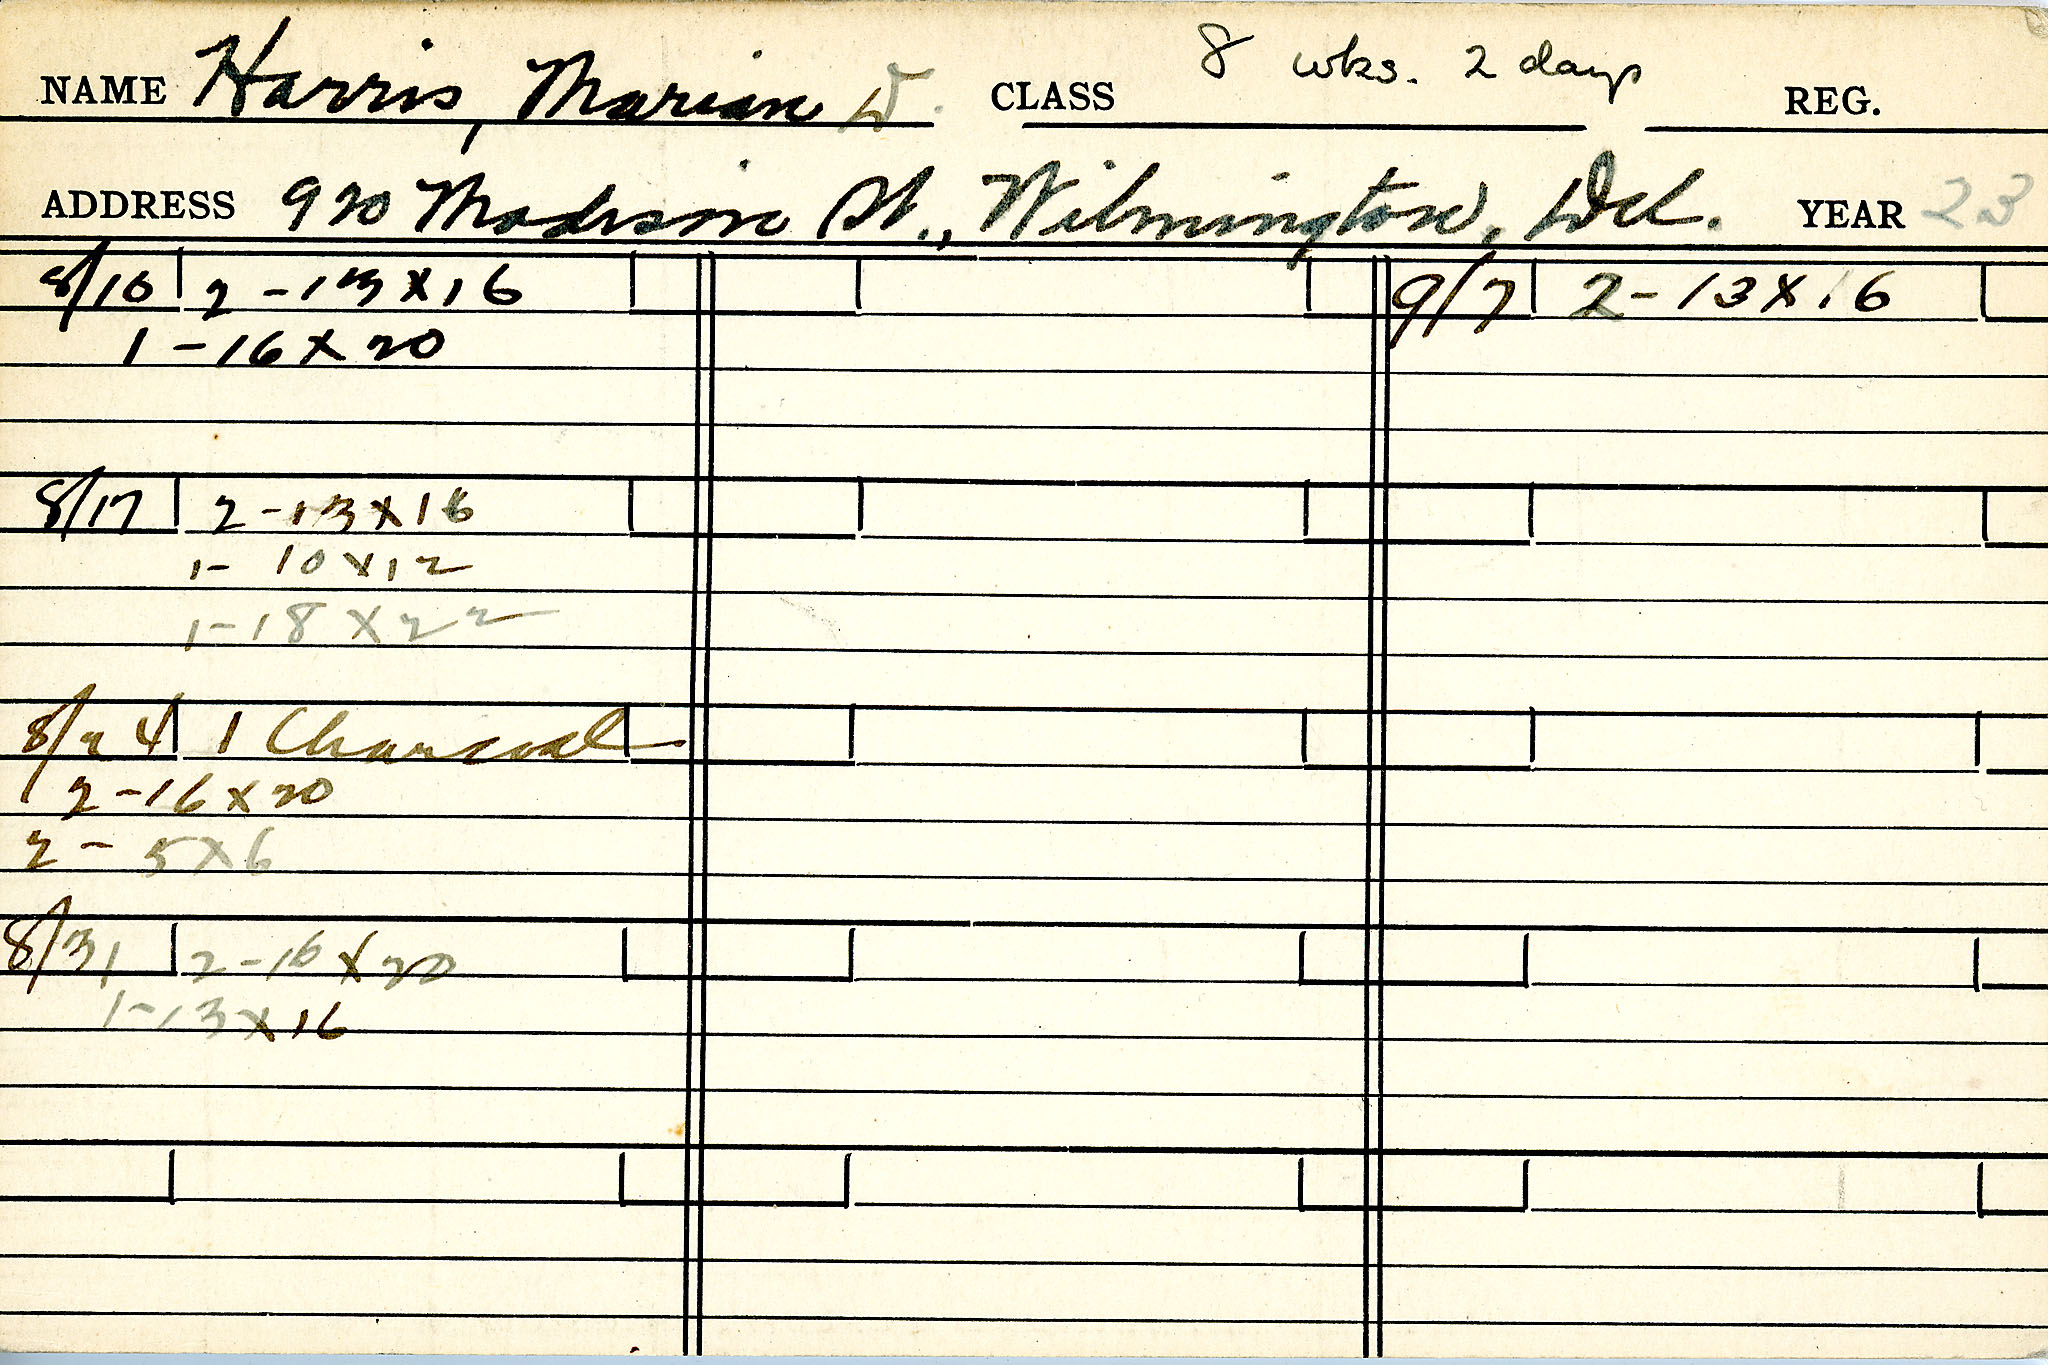 NAME Harris, Marian D. CLASS 8 wks. 2 days REG.
ADDRESS 920 Madison St., Wilmington, Del. YEAR 23
8/10 2-13x16 9/7 2-13x16
1-16x20
8/17 2-13x16
1-10x12
1-18x22
8/24 1 Charcoal
2-16x20
2-5x6
8/31 2-16x20
1-13x16